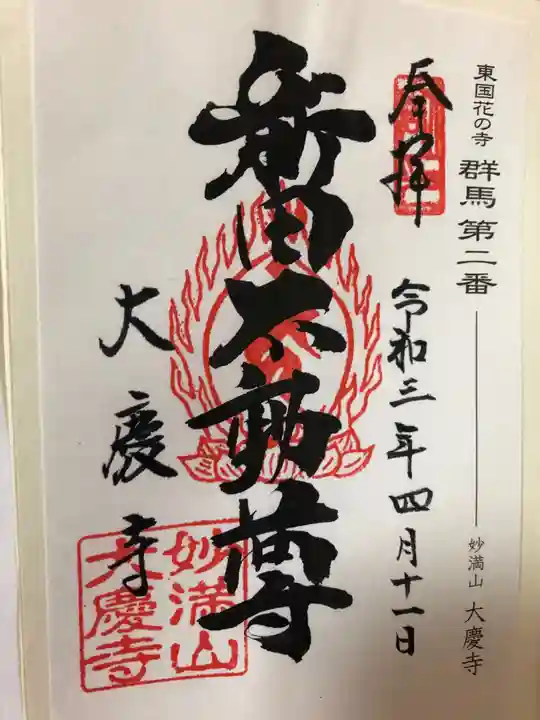 東国花の寺 群馬第二番
妙満山 大慶寺
奉拝
令和三年四月十一日
新田不動尊
大慶寺
妙満山
大慶寺